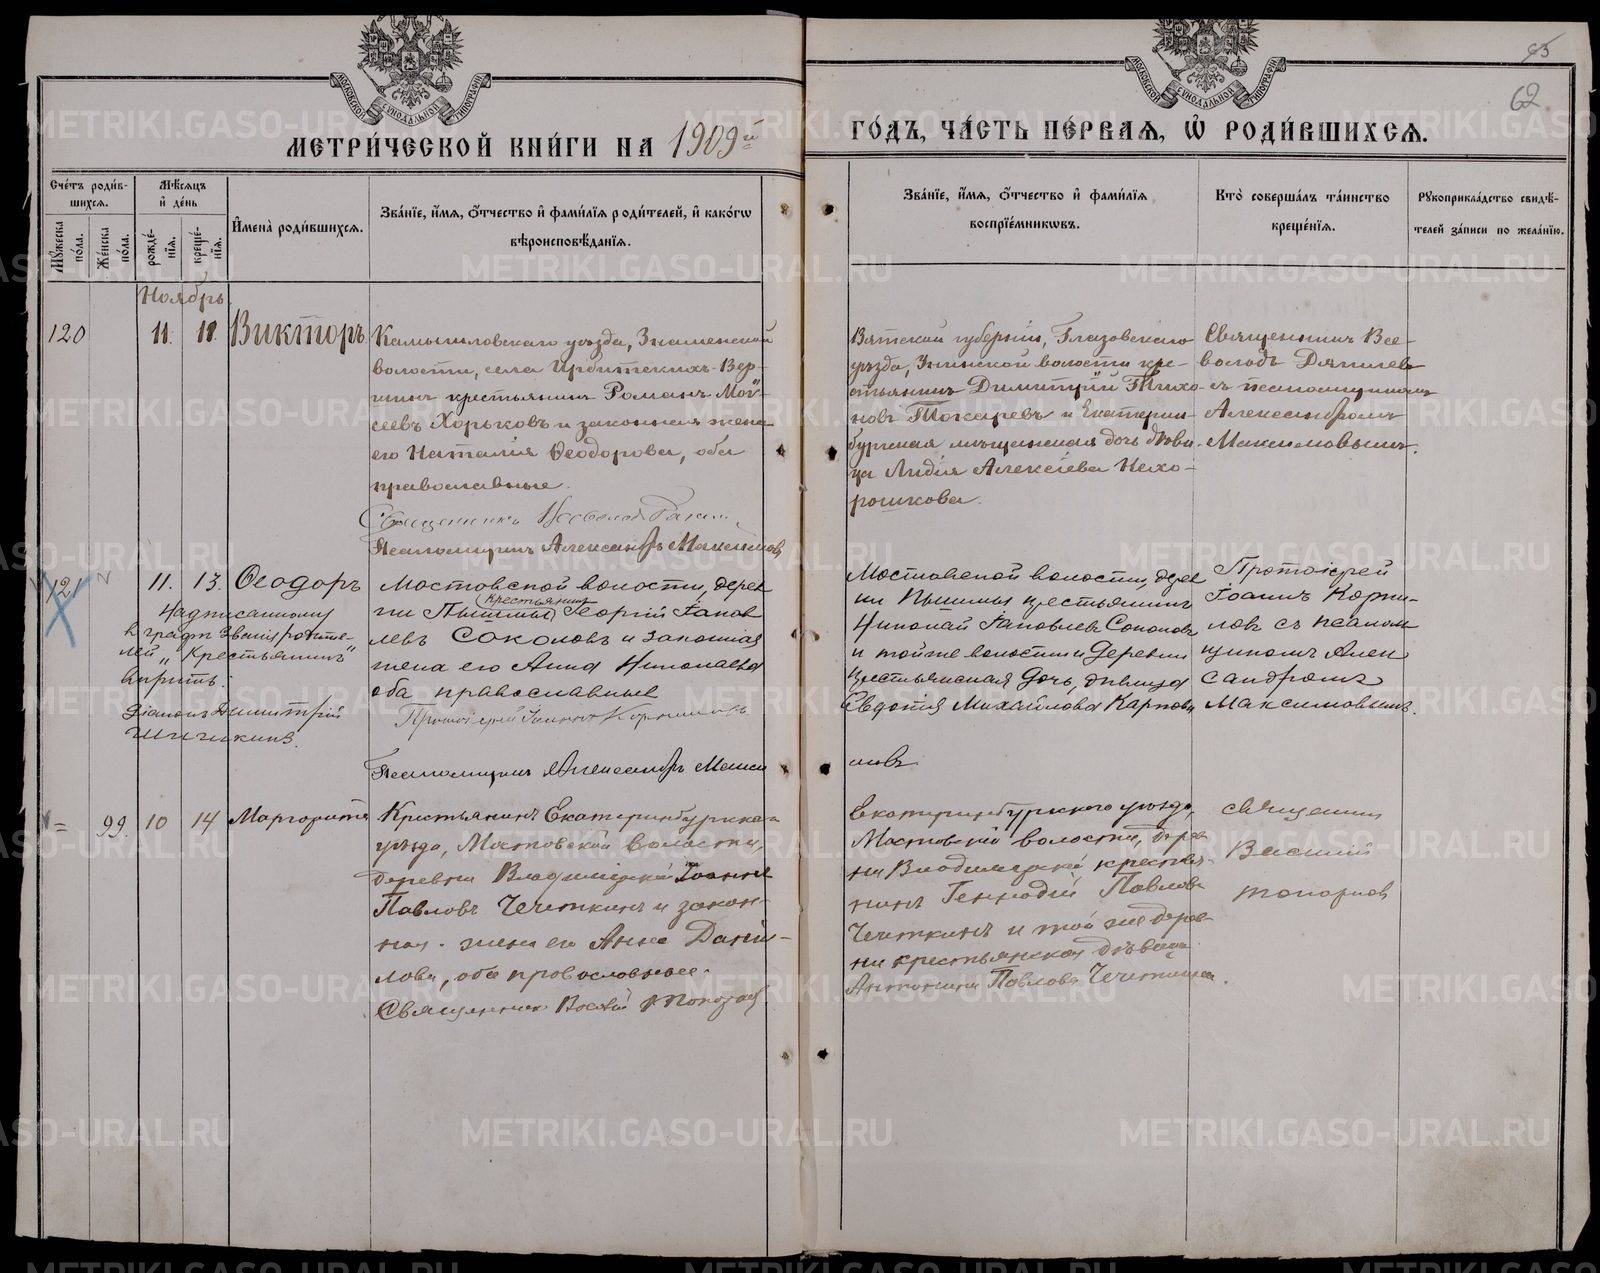 МЕТРИ́ЧЕСКОЙ КНИ́ГИ НА 1909й
ГО́ДЪ, ЧА́СТЬ ПЕ́РВАЯ, Ѡ҆ РОДИ́ВШИХСЯ.
62
Сче́тъ роди́в-
шихся.
Мѣ́сяцъ
и҆ де́нь
Мꙋ́жеска по́ла.
Же́нска по́ла.
рожде́-
нїя.
креще́-
нїя.
И҆мена̀ роди́вшихся.
Зва́нїе, и҆́мя, ѻ҆́тчество и҆ фами́лїя роди́телей, и҆ како́гѡ
вѣроисповѣ́данїя.
Зва́нїе, и҆́мя, ѻ҆́тчество и҆ фами́лїя
воспрїе́мникѡвъ.
Кто̀ соверша́лъ та́инство
креще́нїя.
Рꙋкоприкла́дство свидѣ́-
телей за́писи по жела́нїю.
Ноябрь
120
11.
Викторъ
Камышловскаго уѣзда, Знаменской
волости, села Ирбитскихъ-Вер-
шинъ крестьянинъ Романъ Мои-
сеевъ Хорьковъ и законная жена
его Наталія Ѳеодорова, оба
православные.
Священникъ Всеволодъ
Псаломщикъ Александръ Максимовъ
Вятской губерніи, Глазовскаго
уѣзда, волости кре-
стьянинъ Димитрій Тихо-
новъ Токаревъ и Екатерин-
бургская мѣщанская дочь дѣви-
ца Лидія Алексіева Нехо-
рошкова.
Священникъ Все-
володъ
съ псаломщикомъ
Александромъ
Максимовымъ.
121
11. 13. Ѳеодоръ
Надписанному
въ графѣ званія родите-
лей „Крестьянинъ"
вѣрить.
Діаконъ Димитрій
Шишкинъ.
Мостовской волости, дерев
ни Пышмы крестьянинъ Георгій Іаков
левъ Соколовъ и законная
жена его Анна Николаева
оба православные
Протоіерей Іоаннъ Корниловъ
Псаломщикъ Александръ Макси
мовъ
Мостовской волости, дерев
ни Пышмы крестьянинъ
Николай Іаковлевъ Соколовъ
и той же волости и деревни
крестьянская дочь, дѣвица
Евдокія Михайлова Карпова
Протоіерей
Іоаннъ Корни-
ловъ съ псалом
щикомъ Алек
сандромъ
Максимовымъ.
99. 10 14 Маргарита
Крестьянинъ Екатеринбургскаго
уѣзда, Мостовской волости,
деревни Владимірской Іоаннъ
Павловъ Чечткинъ и закон-
ная жена его Анна Даніи-
лова, оба православные.
Священникъ Василій Топорковъ
Екатеринбургскаго уѣзда,
Мостовской волости, дерев
ни Владимірской крестья-
нинъ Геннадій Павловъ
Чечткинъ и той же дерев-
ни крестьянская дѣвица
Антонина Павлова Чечткина.
Священникъ
Василій
Топорковъ
METRIKI.GASO-URAL.RU